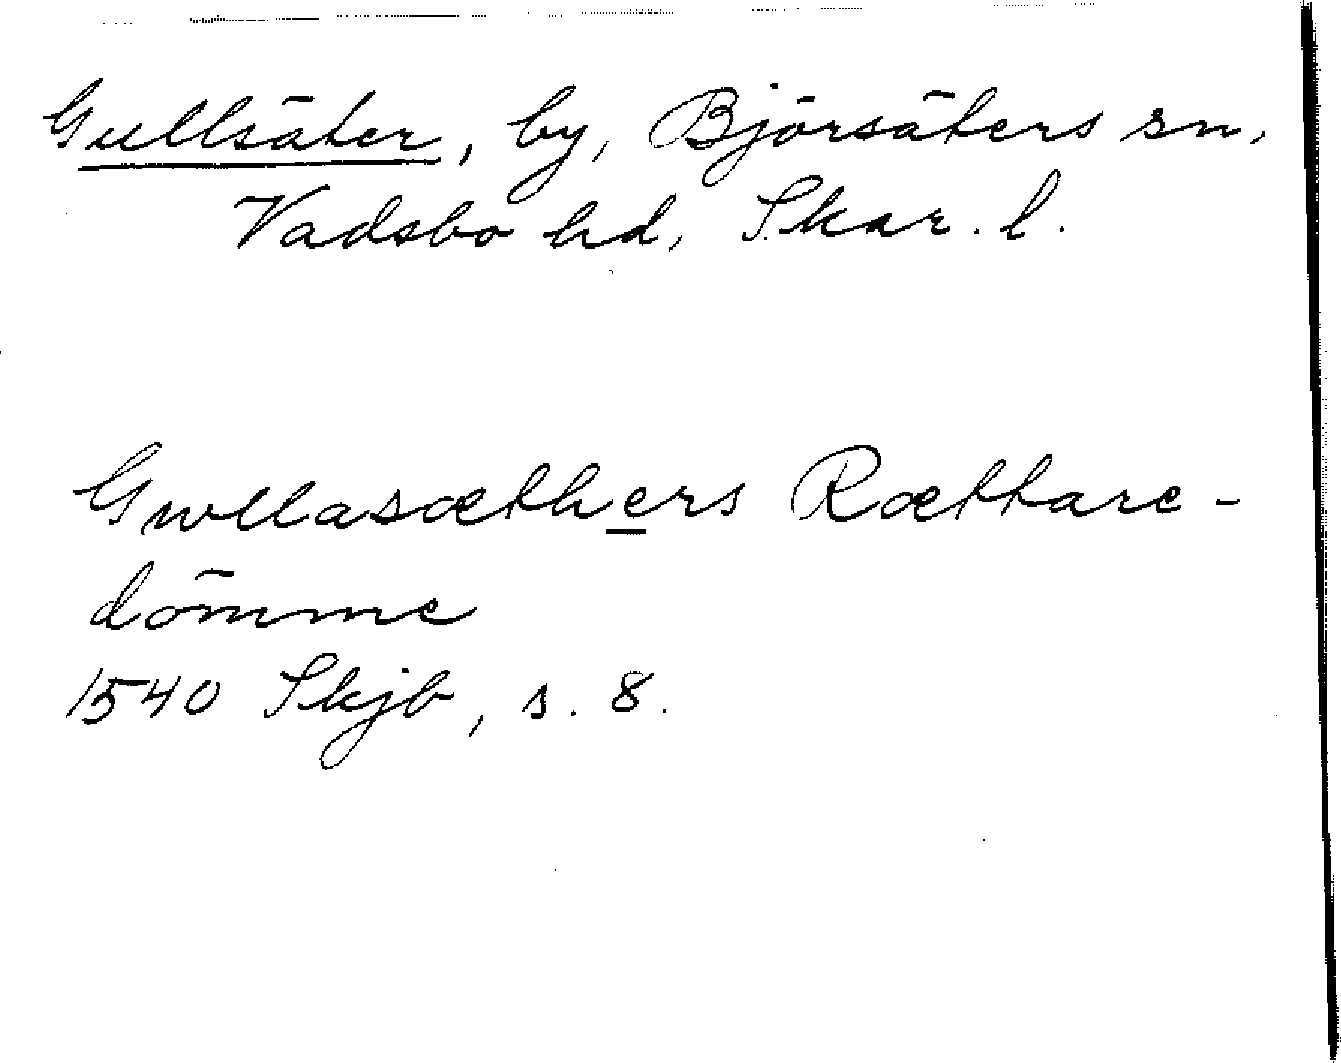 Gullsäter, by, Björsäters sn,
Vadsbo hd, Skar. l.
Gwllasæthers Rættare-
dömme
1540 Skjb, s. 8.